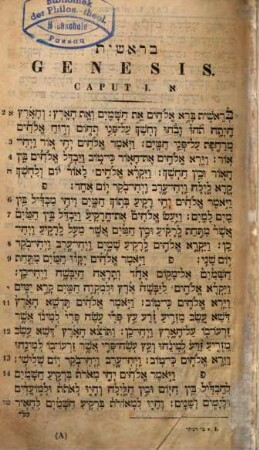 Bibliothek
der Philos.-theol.
Hochschule
Passau
בראשית
GENESIS.
CAPUT I. א
בראשית ברא אלהים את השמים ואת הארץ: והארץ 2
היתה תהו ובהו וחשך על־פני תהום ורוח אלהים
מרחפת על־פני המים: ויאמר אלהים יהי אור ויהי־ 3
אור: וירא אלהים את־האור כי־טוב ויבדל אלהים בין 4
האור ובין החשך: ויקרא אלהים לאור יום ולחשך 5
קרא לילה ויהי־ערב ויהי־בקר יום אחד: פ
ויאמר אלהים יהי רקיע בתוך המים ויהי מבדיל בין 6
מים למים: ויעש אלהים את־הרקיע ויבדל בין המים 7
אשר מתחת לרקיע ובין המים אשר מעל לרקיע ויהי־
כן: ויקרא אלהים לרקיע שמים ויהי־ערב ויהי־בקר 8
יום שני: פ ויאמר אלהים יקוו המים מתחת 9
השמים אל־מקום אחד ותראה היבשה ויהי־כן:
ויקרא אלהים ליבשה ארץ ולמקוה המים קרא ימים
וירא אלהים כי־טוב: ויאמר אלהים תדשא הארץ 11
דשא עשב מזריע זרע עץ פרי עשה פרי למינו אשר
זרעו־בו על־הארץ ויהי־כן: ותוצא הארץ דשא עשב 12
מזריע זרע למינהו ועץ עשה־פרי אשר זרעו־בו למינהו
וירא אלהים כי־טוב: ויהי־ערב ויהי־בקר יום שלישי: 13
פ ויאמר אלהים יהי מארת ברקיע השמים 14
להבדיל בין היום ובין הלילה והיו לאתת ולמועדים
ולימים ושנים: והיו למאורת ברקיע השמים להאיר
(A)